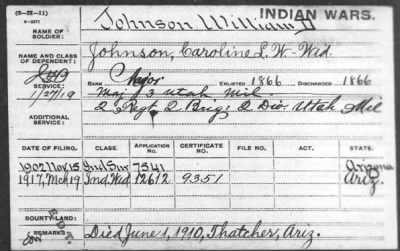 (3-III-11)
INDIAN WARS.
NAME OF SOLDIER: Johnson William D
NAME AND CLASS OF DEPENDENT: Johnson, Caroline L. W- Wid
RANK Major ENLISTED 1866 DISCHARGED 1866
SERVICE: Maj. F 3 Utah Mil.
1/27/19
2 Regt 2 Brig; 2 Div. Utah Mil
ADDITIONAL SERVICE:
DATE OF FILING. CLASS. APPLICATION NO. CERTIFICATE NO. FILE NO. ACT. STATE.
1902 Nov 15 Ind Sur 7541 Arizona
1917, Mch 19 Ind. Wid 12612 9351 Ariz.
BOUNTY-LAND:
REMARKS: Died June 1, 1910, Thatcher, Ariz.